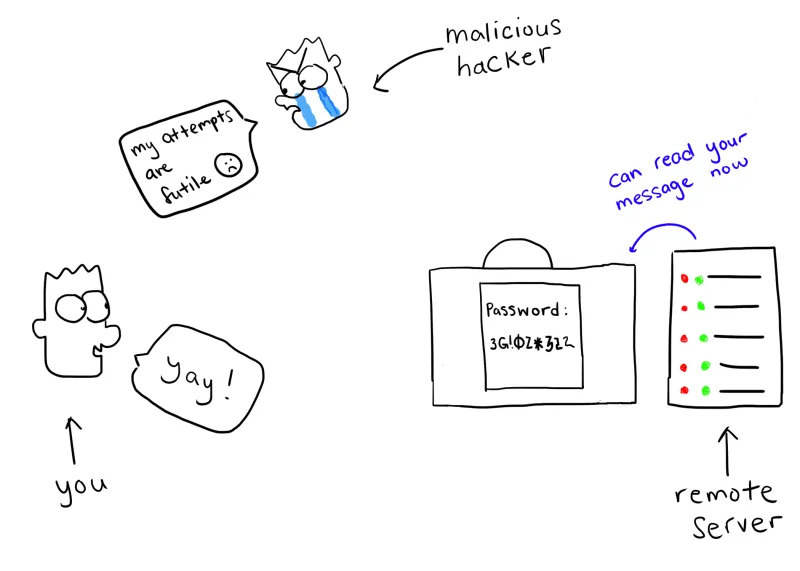 malicious
hacker
my attempts
are
futile
can read your
message now
Password:
yay!
you
remote
server